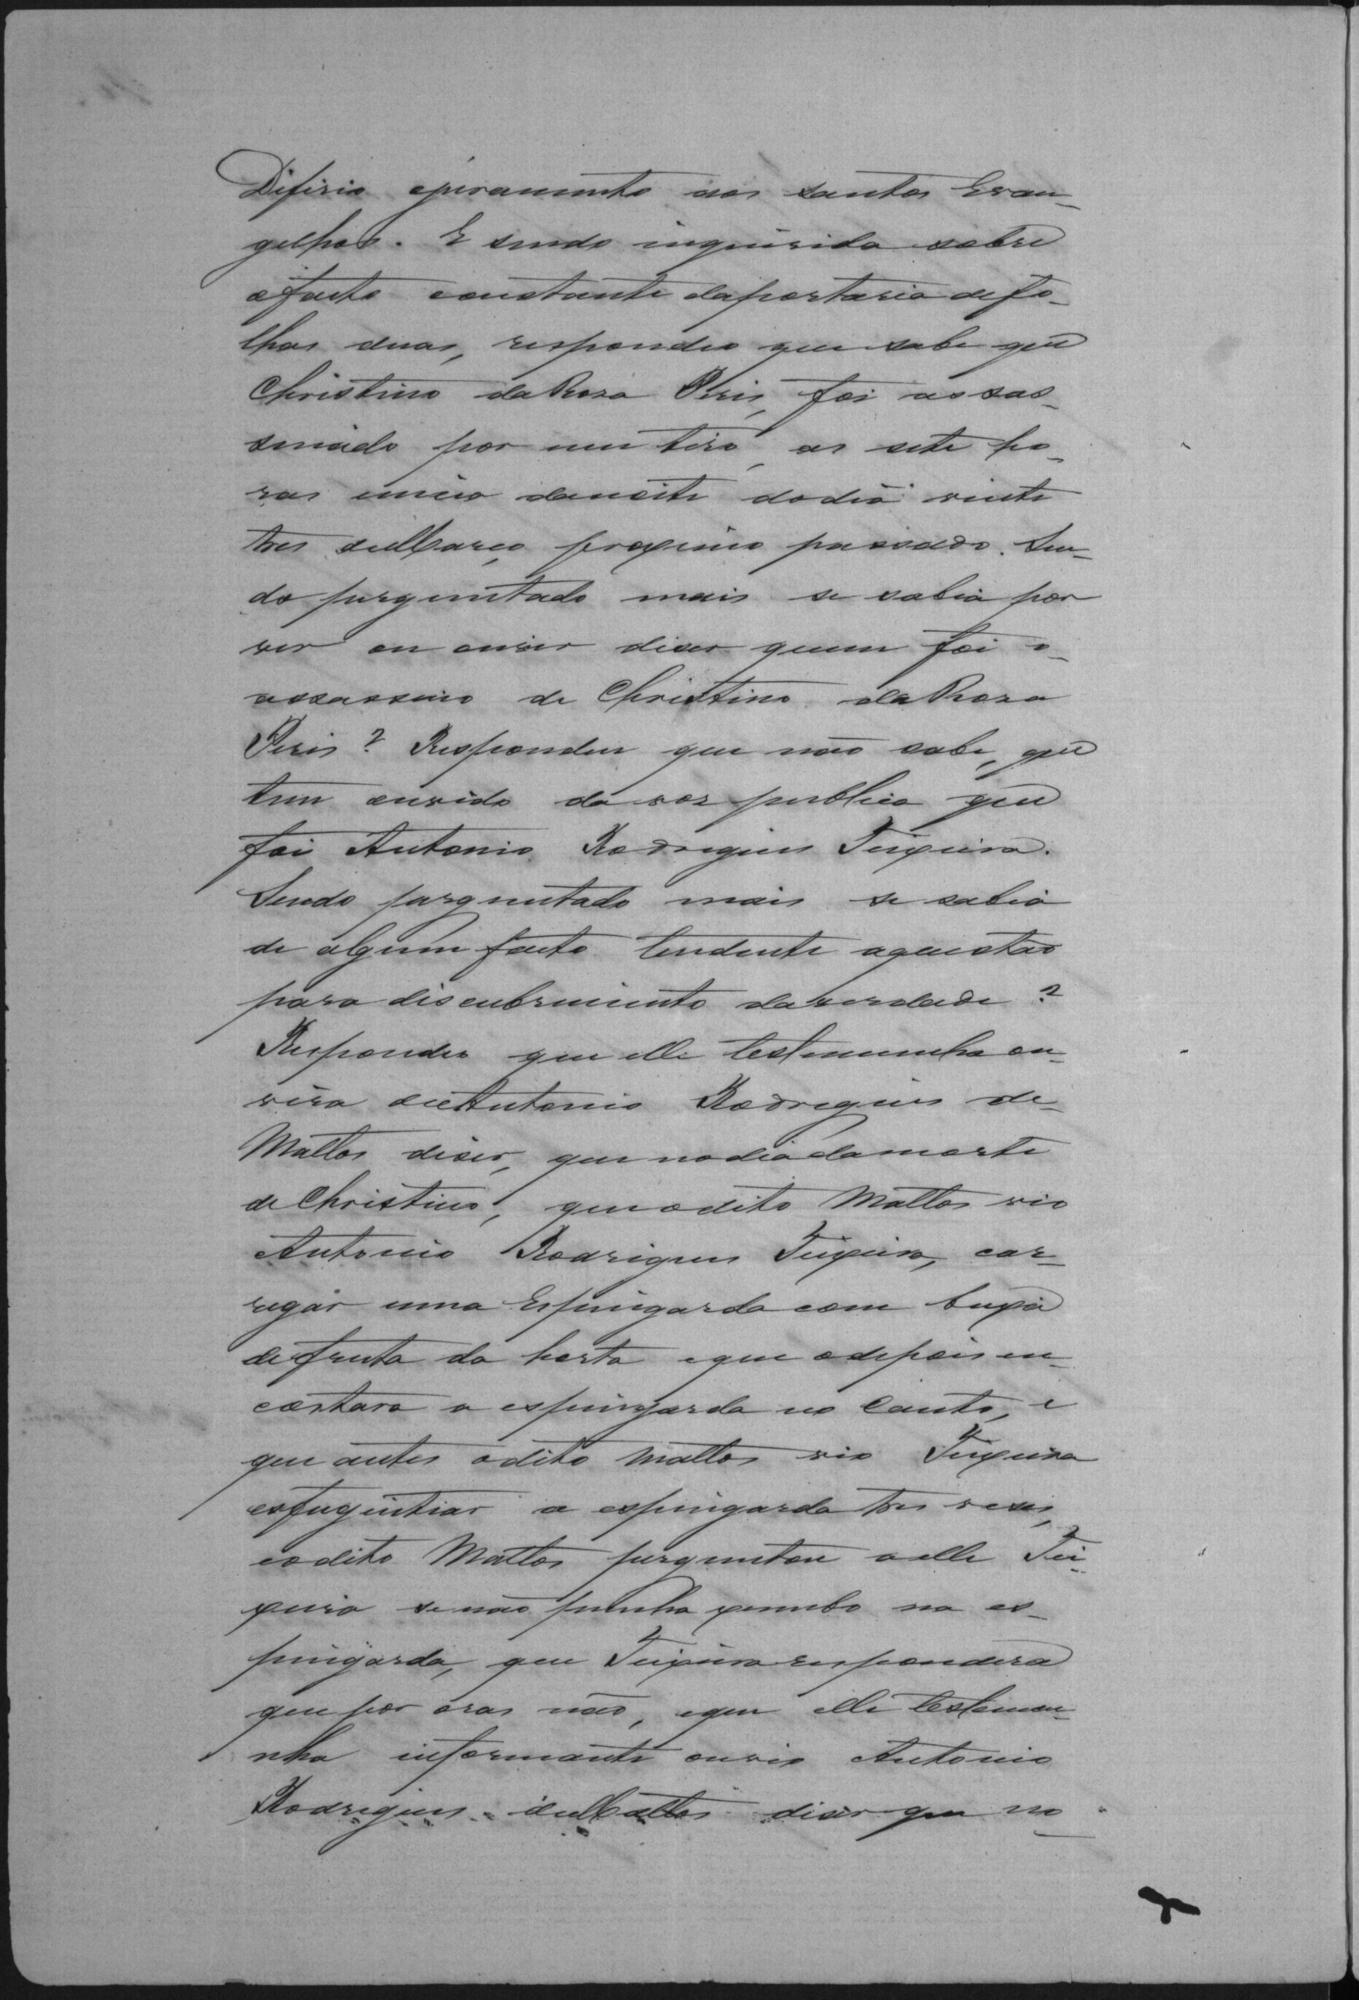 Difirio ojuramento aos Santos Evan-
gelhos. E sendo inquirida sobre
ofacto constante daportaria de fo-
lhas duas, respondeo que sabe que
Christino da Roza Peris, foi assas-
sinado por um tiro, as sete ho-
ras emeia danoite dodia vinte
tres deMarço proximo passado. Sen-
do perguntado mais se sabia por
ver ou ouvir diser quem foi o
assassino de Christino da Roza
Peris? Respondeu que não sabe, que
tem ouvido da vos publica que
foi Antonio Rodrigues Teixeira.
Sendo perguntado mais se sabia
de algum facto tendente aquestão
para discubrimento daverdade?
Respondeo que elle testemunha ou-
vira deAntonio Rodrigues de
Mattos diser, que nodia damorte
de Christino, que odito Mattos vio
Antonio Rodrigues Teixeira, car-
regar uma Espingarda com buxa
de fruta da horta eque odepois en-
costara a espingarda no Canto, e
que antes odito Mattos vio Teixeira
esfuguitiar a espingarda tres veses,
eodito Mattos perguntou a elle Tei-
xeira se não punha xumbo na es-
pingarda, que Teixeira respondera
que por oras não, eque elle testemu-
nha informante ouvio Antonio
Rodrigues deMattos diser que no